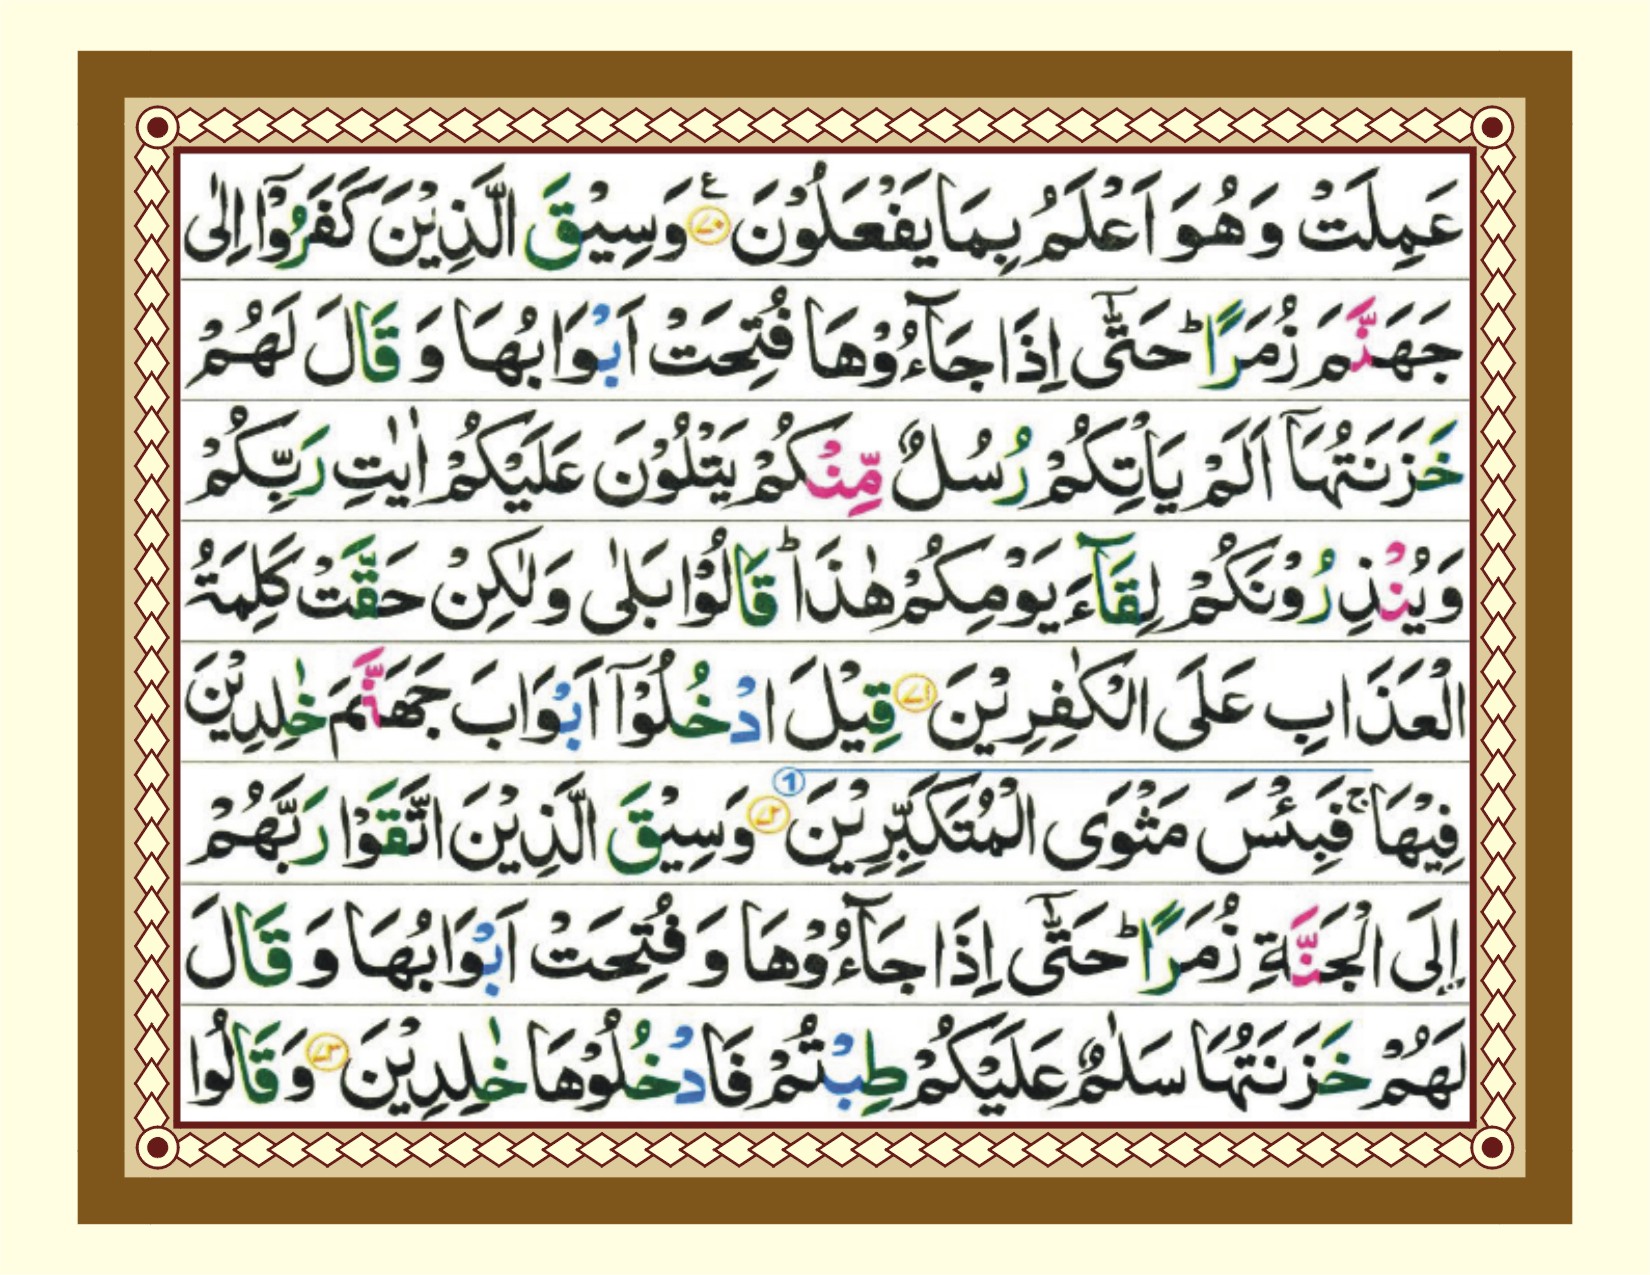 عَمِلَتْ وَهُوَ اَعْلَمُ بِمَا يَفْعَلُوْنَ ۧ ﴿۷۰﴾ وَسِيْقَ الَّذِيْنَ كَفَرُوْۤا اِلٰى
جَهَنَّمَ زُمَرًا ؕ حَتّٰۤى اِذَا جَآءُوْهَا فُتِحَتْ اَبْوَابُهَا وَ قَالَ لَهُمْ
خَزَنَتُهَاۤ اَلَمْ يَاْتِكُمْ رُسُلٌ مِّنْكُمْ يَتْلُوْنَ عَلَيْكُمْ اٰيٰتِ رَبِّكُمْ
وَيُنْذِرُوْنَكُمْ لِقَآءَ يَوْمِكُمْ هٰذَا ؕ قَالُوْا بَلٰى وَلٰكِنْ حَقَّتْ كَلِمَةُ
الْعَذَابِ عَلَى الْكٰفِرِيْنَ ﴿۷۱﴾ قِيْلَ ادْخُلُوْۤا اَبْوَابَ جَهَنَّمَ خٰلِدِيْنَ
فِيْهَا ۚ فَبِئْسَ مَثْوَى الْمُتَكَبِّرِيْنَ ① ﴿۷۲﴾ وَسِيْقَ الَّذِيْنَ اتَّقَوْا رَبَّهُمْ
اِلَى الْجَنَّةِ زُمَرًا ؕ حَتّٰۤى اِذَا جَآءُوْهَا وَ فُتِحَتْ اَبْوَابُهَا وَ قَالَ
لَهُمْ خَزَنَتُهَا سَلٰمٌ عَلَيْكُمْ طِبْتُمْ فَادْخُلُوْهَا خٰلِدِيْنَ ﴿۷۳﴾ وَ قَالُوا